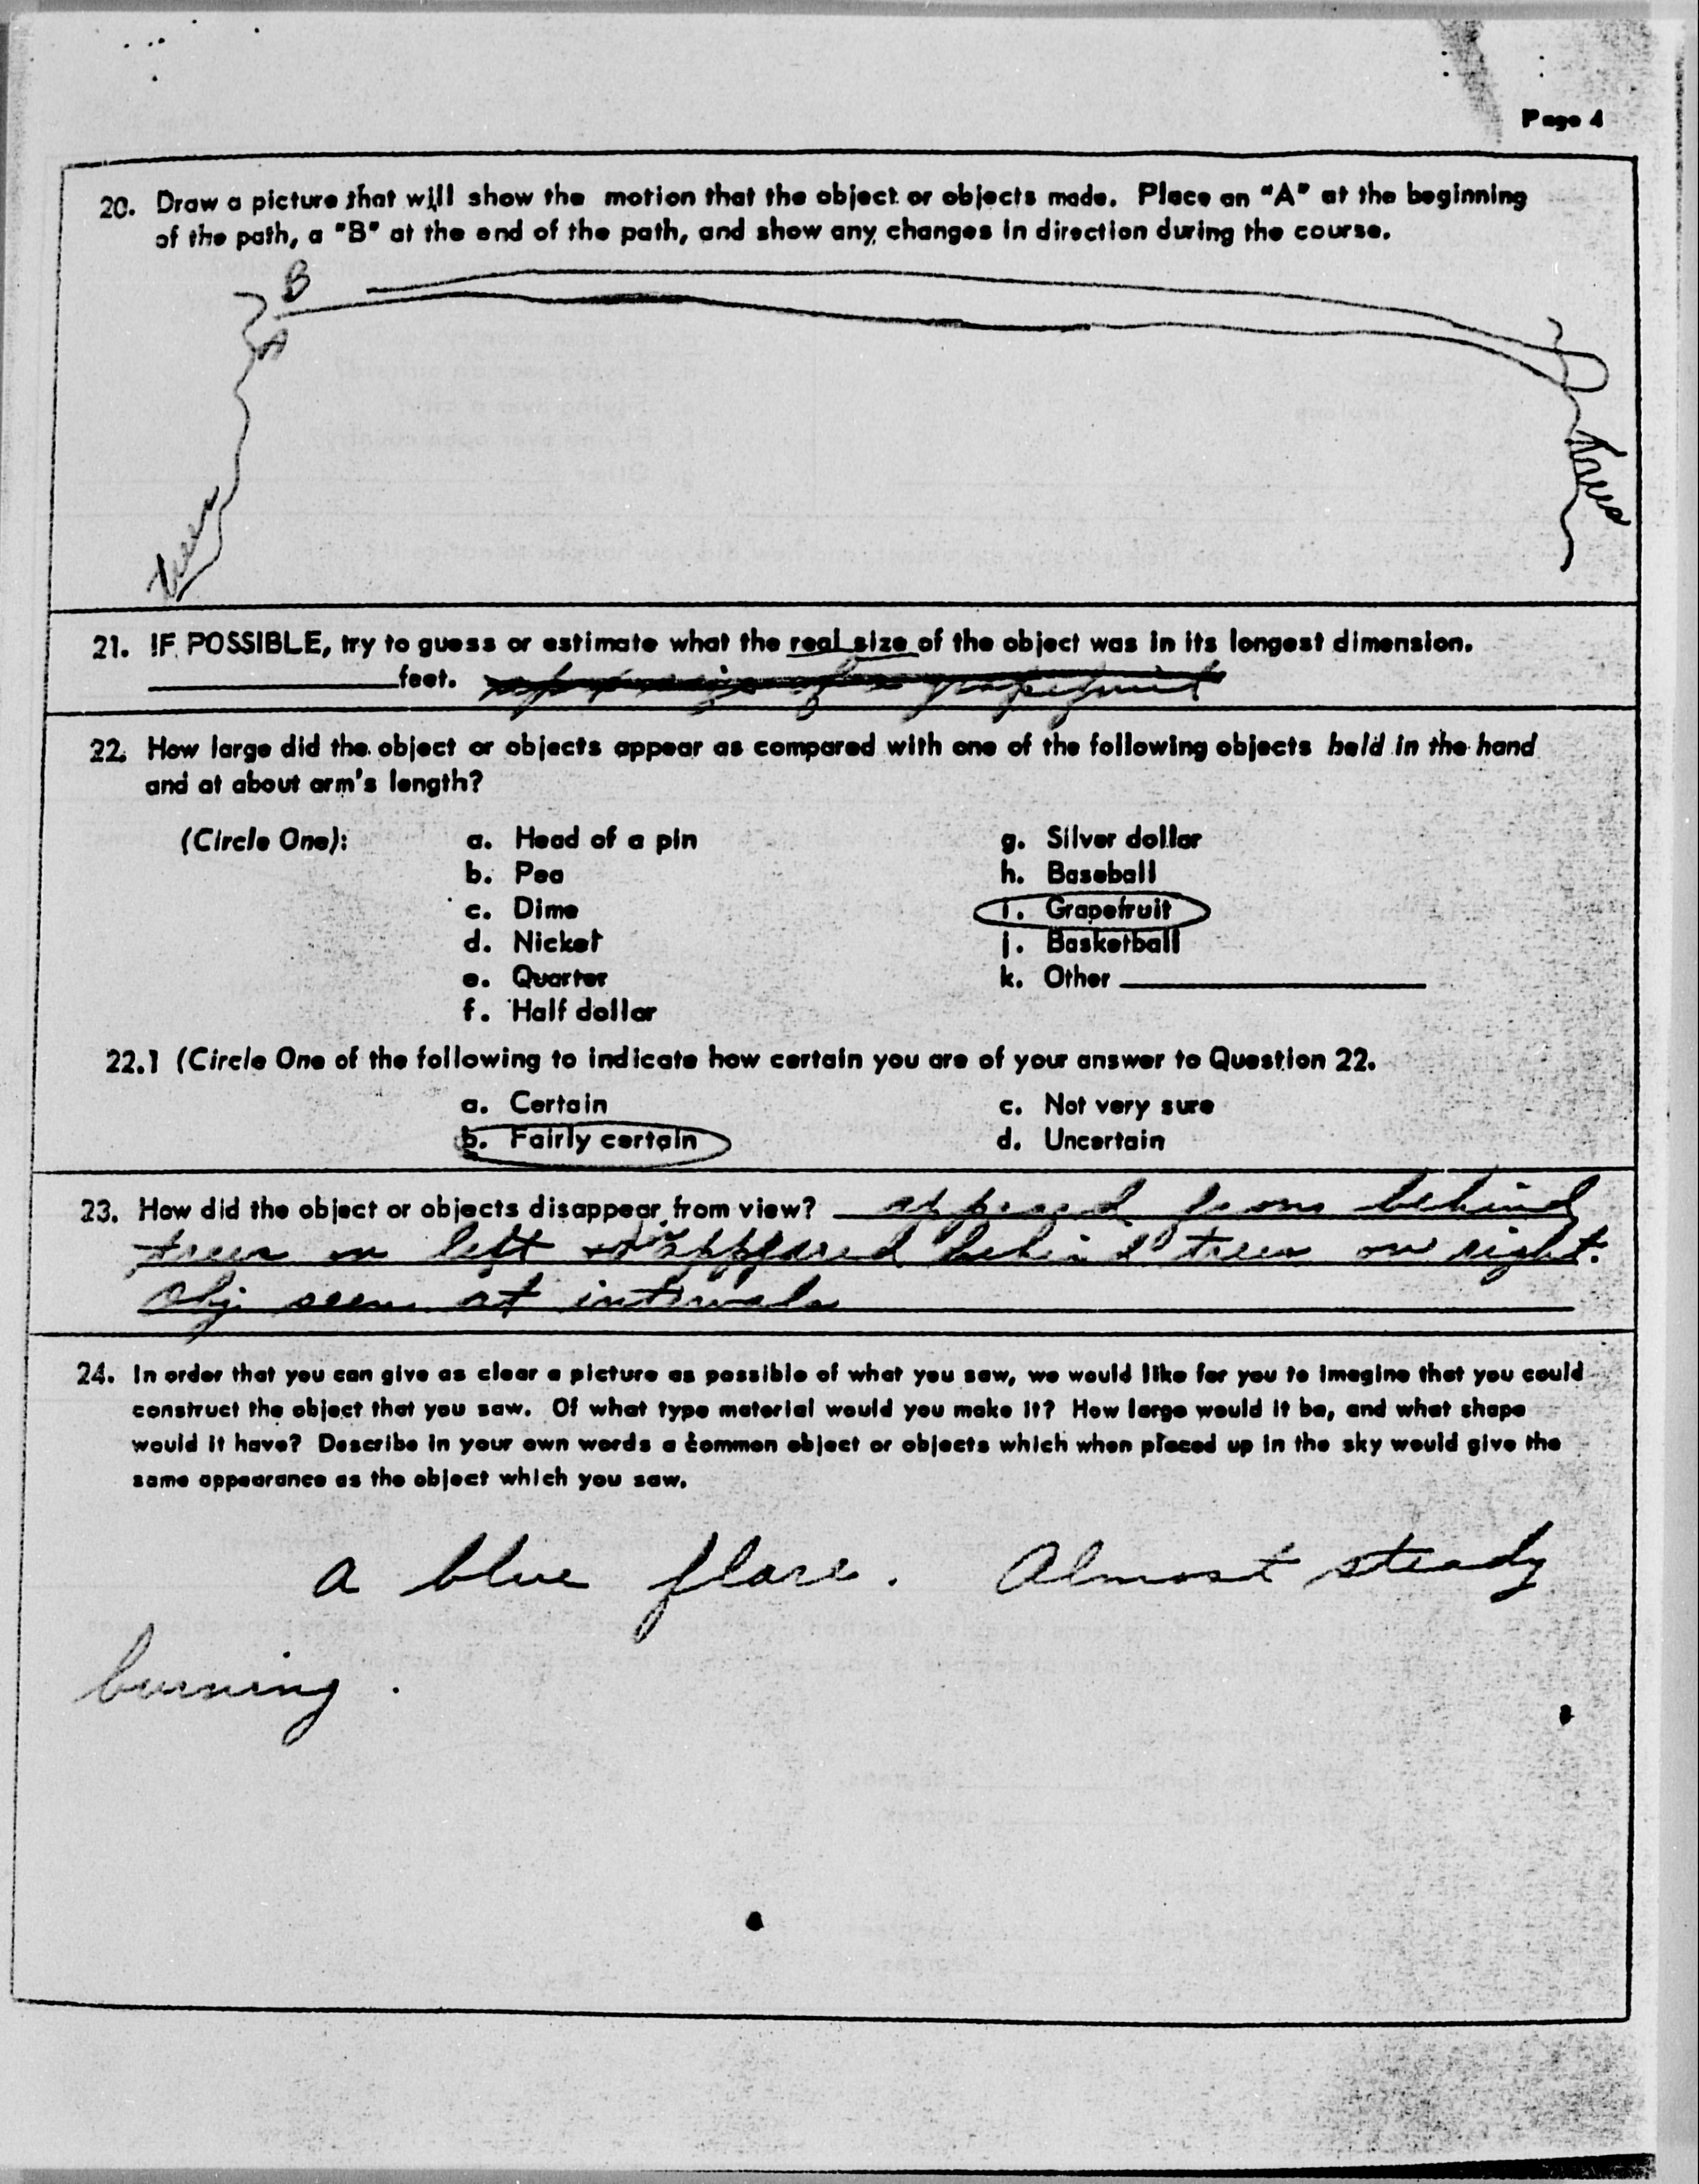 Page 4
20. Draw a picture that will show the motion that the object or objects made. Place an "A" at the beginning
of the path, a "B" at the end of the path, and show any changes in direction during the course.
B
A
trees
trees
21. IF POSSIBLE, try to guess or estimate what the real size of the object was in its longest dimension.
feet. grapefruit
22. How large did the object or objects appear as compared with one of the following objects held in the hand
and at about arm's length?
(Circle One): a. Head of a pin g. Silver dollar
b. Pea h. Baseball
c. Dime i. Grapefruit
d. Nickel j. Basketball
e. Quarter k. Other
f. Half dollar
22.1 (Circle One of the following to indicate how certain you are of your answer to Question 22.
a. Certain c. Not very sure
b. Fairly certain d. Uncertain
23. How did the object or objects disappear from view? appeared from behind
trees on left disappeared behind trees on right.
Obj seen at intervals
24. In order that you can give as clear a picture as possible of what you saw, we would like for you to imagine that you could
construct the object that you saw. Of what type material would you make it? How large would it be, and what shape
would it have? Describe in your own words a common object or objects which when placed up in the sky would give the
same appearance as the object which you saw.
a blue flare. Almost steady
burning.